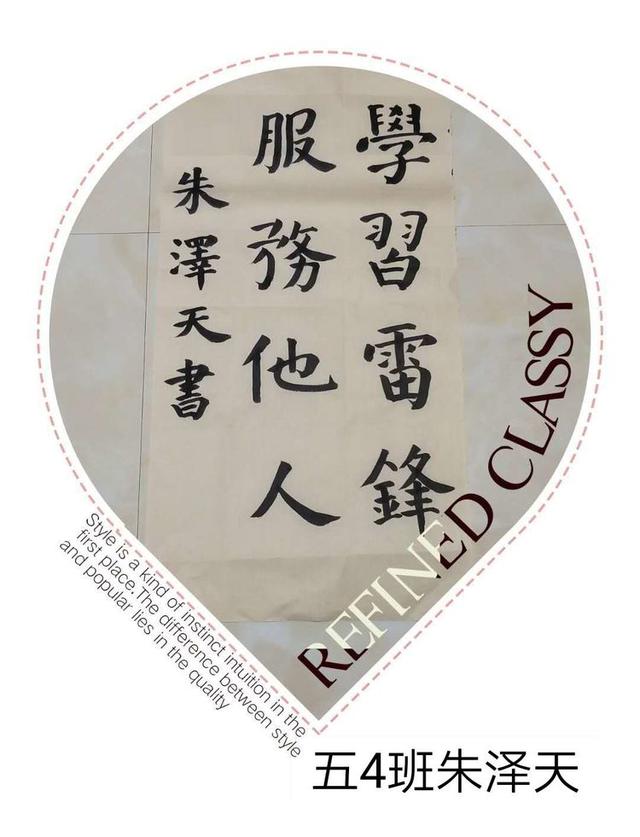 學習雷鋒
服務他人
朱澤天書
REFINED CLASSY
Style is a kind of instinct intuition in the
first place.The difference between style
and popular lies in the quality
五4班朱泽天